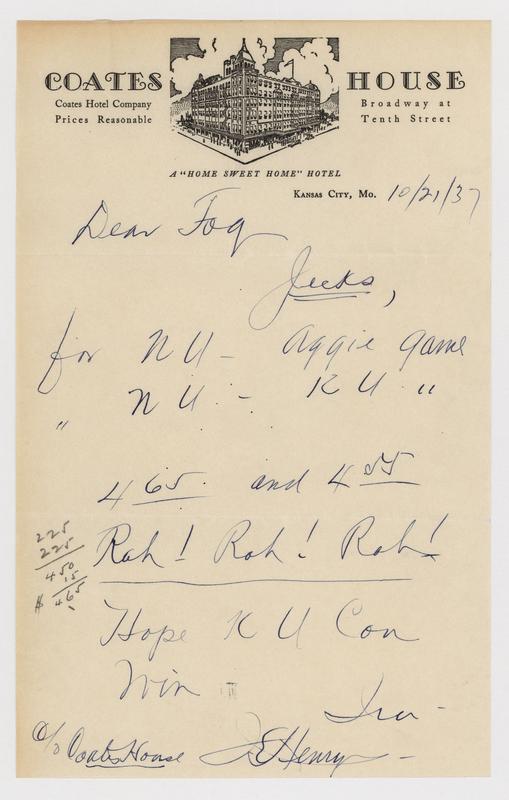 COATES HOUSE
Coates Hotel Company
Prices Reasonable
Broadway at
Tenth Street
A "HOME SWEET HOME" HOTEL
KANSAS CITY, MO. 10/21/37
Dear Fog
for NU - Aggie Game
" NU - KU "
4 65 and 4 55
Rah! Rah! Rah!
225
225
450
15
$ 465
Hope KU Can
Win
Ira
c/o Coates House Henry